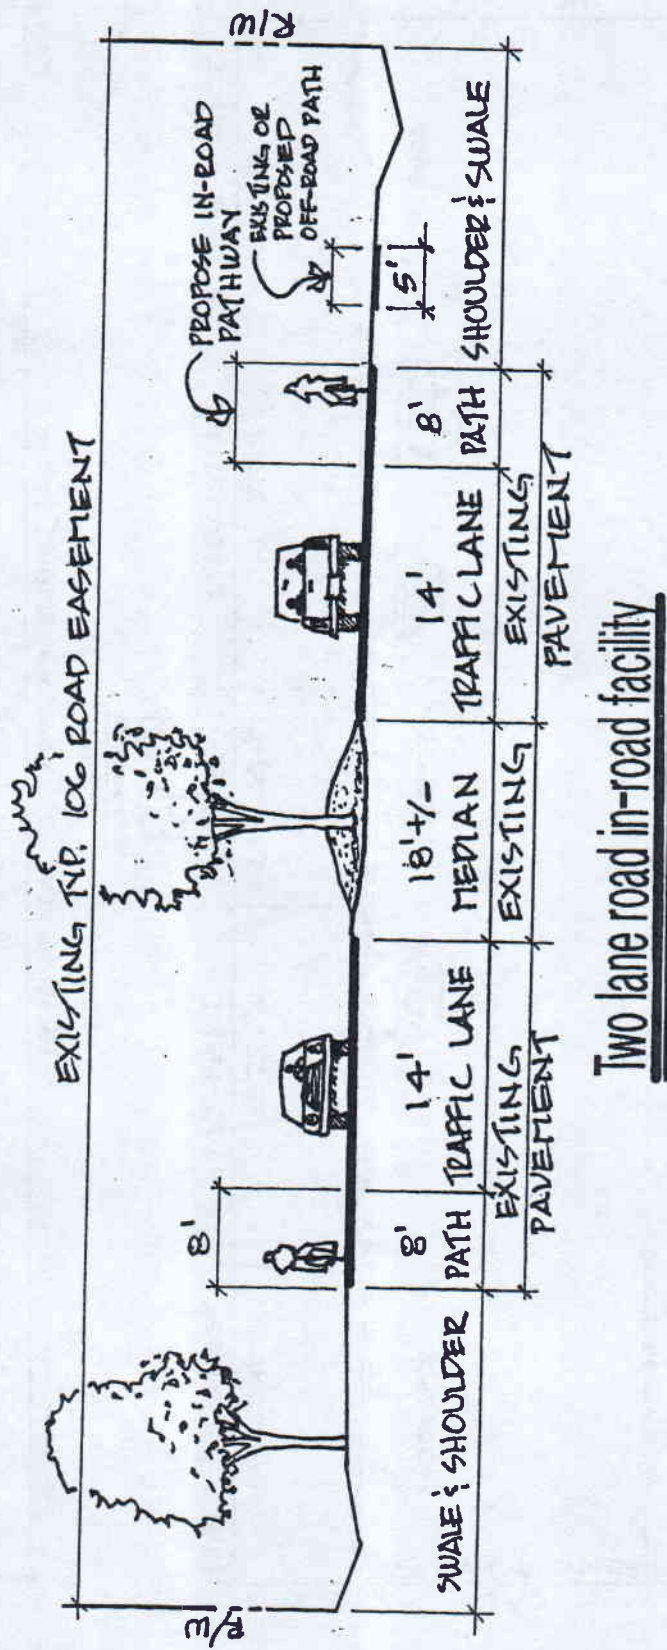 EXISTING TYP. 106' ROAD EASEMENT
R/W
R/W
PROPOSE IN-ROAD
PATHWAY
EXISTING OR
PROPOSED
OFF-ROAD PATH
8'
SWALE & SHOULDER
8'
PATH
14'
TRAFFIC LANE
18'+/-
MEDIAN
14'
TRAFFIC LANE
8'
PATH
5'
SHOULDER & SWALE
EXISTING
PAVEMENT
EXISTING
EXISTING
PAVEMENT
Two lane road in-road facility